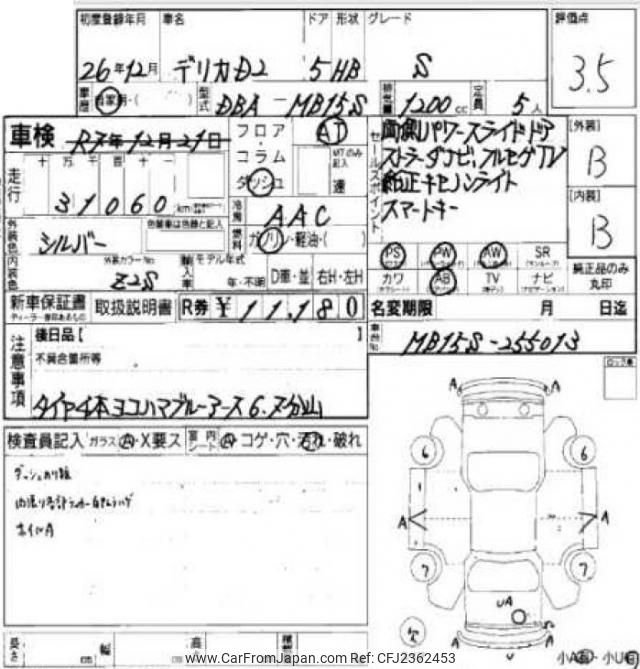 初度登録年月 車名 ドア 形状 グレード 評価点
26年12月 デリカD2 5 HB S 3.5
車歴 自家用・( ) 型式 DBA-MB15S 排気量 1200cc 定員 5人
車検 R7年12月21日 フロア・ AT
コラム MTのみ記入
ダッシュ 速
セールスポイント
両側パワースライドドア
ストラーダナビ,フルセグTV
純正キセノンライト
スマートキー
[外装]
B
[内装]
B
純正品のみ
丸印
走行 十 万 千 百 十 一
31060 km
冷房 AAC
燃料 ガソリン・軽油・( )
外装色 シルバー 色替車は色器と記入
内装色 外装カラーNo Z2S
輸入車 モデル年式
年・不明 D車・並 右H・左H
PS PW AW SR
カワ AB TV ナビ
新車保証書 取扱説明書 R券 ¥11,180
ディーラー捺印あるもの
名変期限 月 日迄
車台No MB15S-255013
注意事項
後日品[ ]
不具合箇所等
タイヤ4本ヨコハマブルーアース6.7分山
検査員記入 ガラス A・X要ス 室内シート A・コゲ・穴・汚れ・破れ
ホイルA
A A
6 6
A A
7 7
UA
A A
U
長さ cm 幅 cm 高さ
www.CarFromJapan.com Ref: CFJ2362453
小A・小U